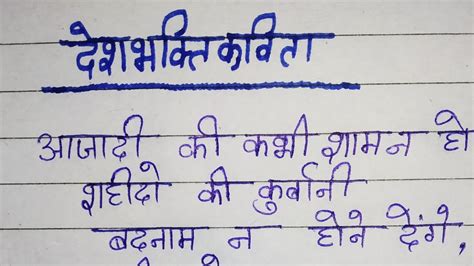 देशभक्ति कविता
आजादी की कभी शाम न हो
शहीदो की कुर्बानी
बदनाम न होने देंगे,